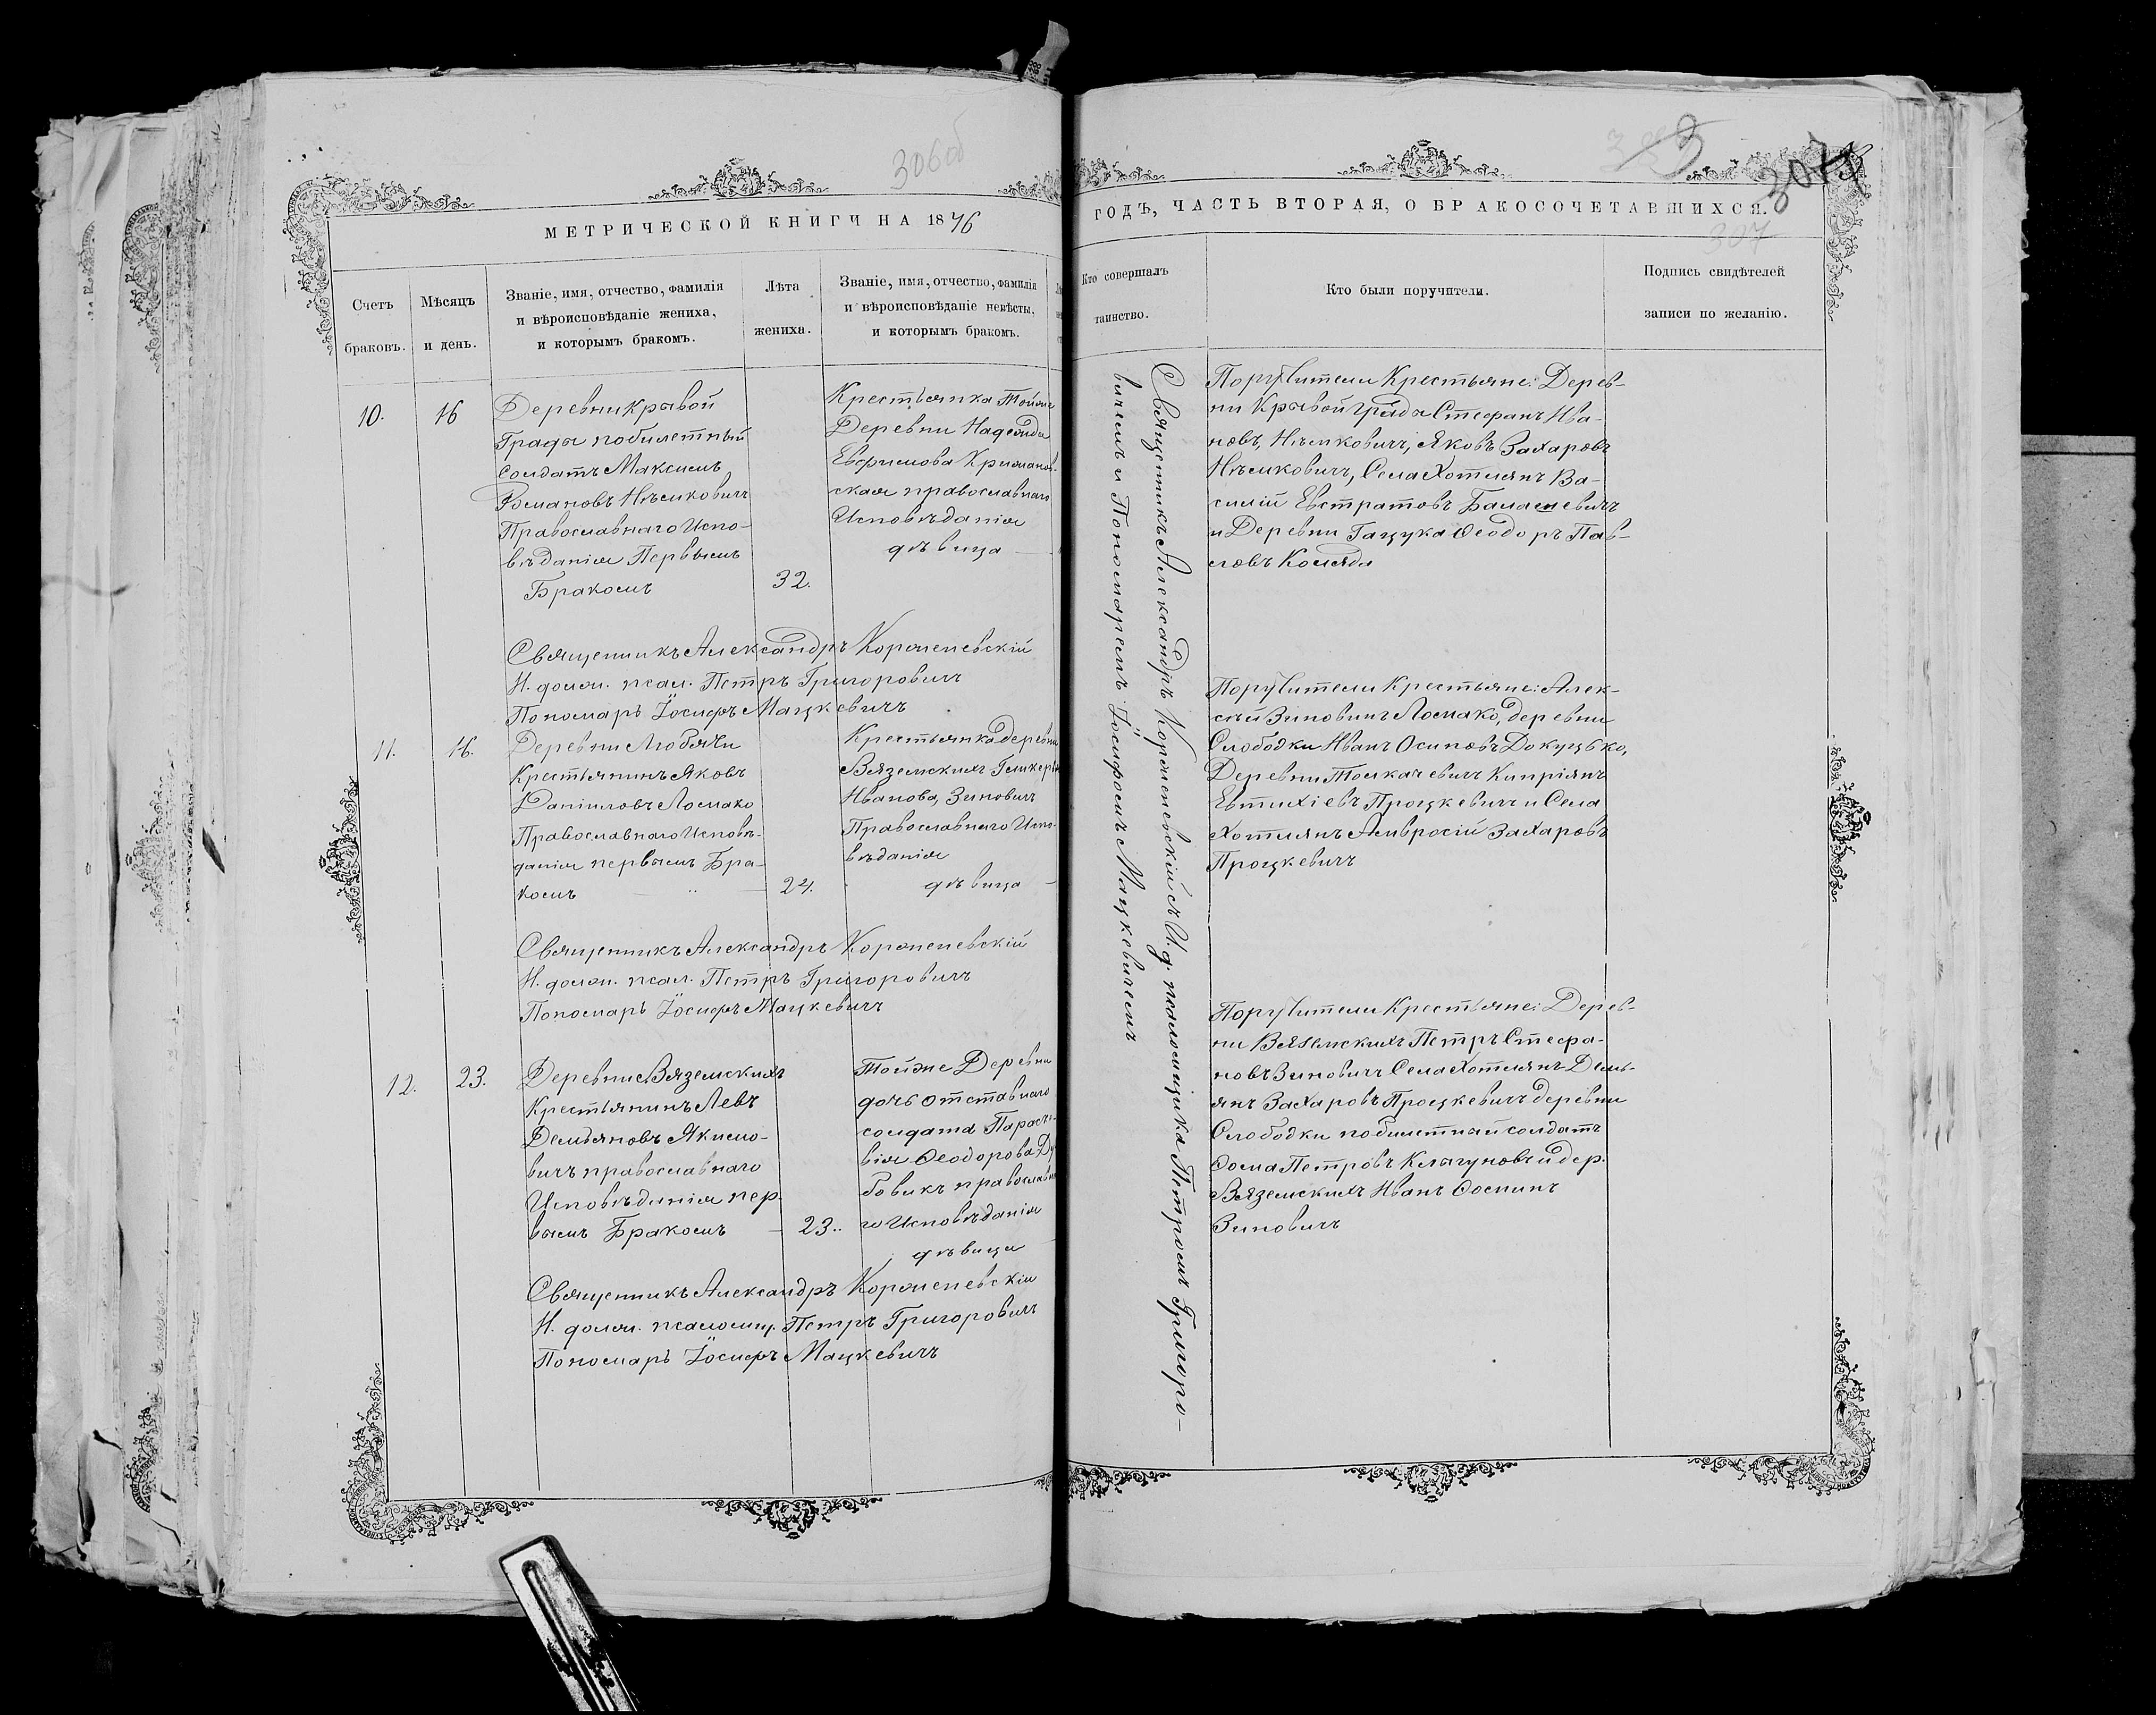 306об
МЕТРИЧЕСКОЙ КНИГИ НА 1876
Счетъ
браковъ.
Мѣсяцъ
и день.
Званіе, имя, отчество, фамилія
и вѣроисповѣданіе жениха,
и которымъ бракомъ.
Лѣта
жениха.
Званіе, имя, отчество, фамилія
и вѣроисповѣданіе невѣсты,
и которымъ бракомъ.
10.
16
Деревни Крывой
Грады побилетный
солдатъ Максимъ
Романовъ Нѣмковичъ
Православнаго Испо-
вѣданія Первымъ
Бракомъ
32.
Крестьянка Тойже
Деревни Надежда
Евфимова
ская православнаго
Исповѣданія
дѣвица
Священникъ Александръ Корженевскій
И. долж. псал. Петръ Григоровичъ
Пономарь Іосифъ Мацкевичъ
11.
16.
Деревни Любачи
Крестьянинъ Яковъ
Даніиловъ Ломако
Православнаго Исповѣ-
данія первымъ Бра-
комъ
24.
Крестьянка деревни
Вяземскихъ Гликерія
Иванова, Зиновичъ
Православнаго Испо-
вѣданія
дѣвица
Священникъ Александръ Корженевскій
И. долж. псал. Петръ Григоровичъ
Пономарь Іосифъ Мацкевичъ
12.
23.
Деревни Вяземскихъ
Крестьянинъ Левъ
Демьяновъ Якимо-
вичъ православнаго
Исповѣданія пер-
вымъ Бракомъ
23..
Тойже Деревни
дочь отставнаго
солдата Параске-
вія Ѳеодорова Ду
бовикъ православна
го Исповѣданія
дѣвица
Священникъ Александръ Корженевскій
И. долж. псаломщ. Петръ Григоровичъ
Пономарь Іосифъ Мацкевичъ
307
ГОДЪ, ЧАСТЬ ВТОРАЯ, О БРАКОСОЧЕТАВШИХСЯ.
307
Кто совершалъ
таинство.
Кто были поручители.
Подпись свидѣтелей
записи по желанію.
Священникъ Александръ Корженевскій съ И. д. псаломщика Петромъ Григоро-
вичемъ и Пономаремъ Іосифомъ Мацкевичемъ
Поручители Крестьяне: Дерев-
ни Крывой Града Стефанъ Ива-
новъ, Нѣмковичъ, Яковъ Захаровъ
Нѣмковичъ, Села Хотлянъ Ва-
силій Евстратовъ
и Деревни Гацука Ѳеодоръ Пав-
ловъ Коляда
Поручители Крестьяне: Алек-
сѣй Зиновичъ Ломако, деревни
Слободки Иванъ Осиповъ Докурько,
Деревни Толкачевичъ Кипріянъ
Евтихіевъ Процкевичъ и Села
Хотлянъ Амвросій Захаровъ
Процкевичъ
Поручители Крестьяне: Дерев-
ни Вяземскихъ Петръ Стефа-
новъ Зиновичъ Села Хотлянъ Демь-
янъ Захаровъ Процкевичъ деревни
Слободки побилетный солдатъ
Ѳома Петровъ и дер.
Вяземскихъ Иванъ
Зиновичъ